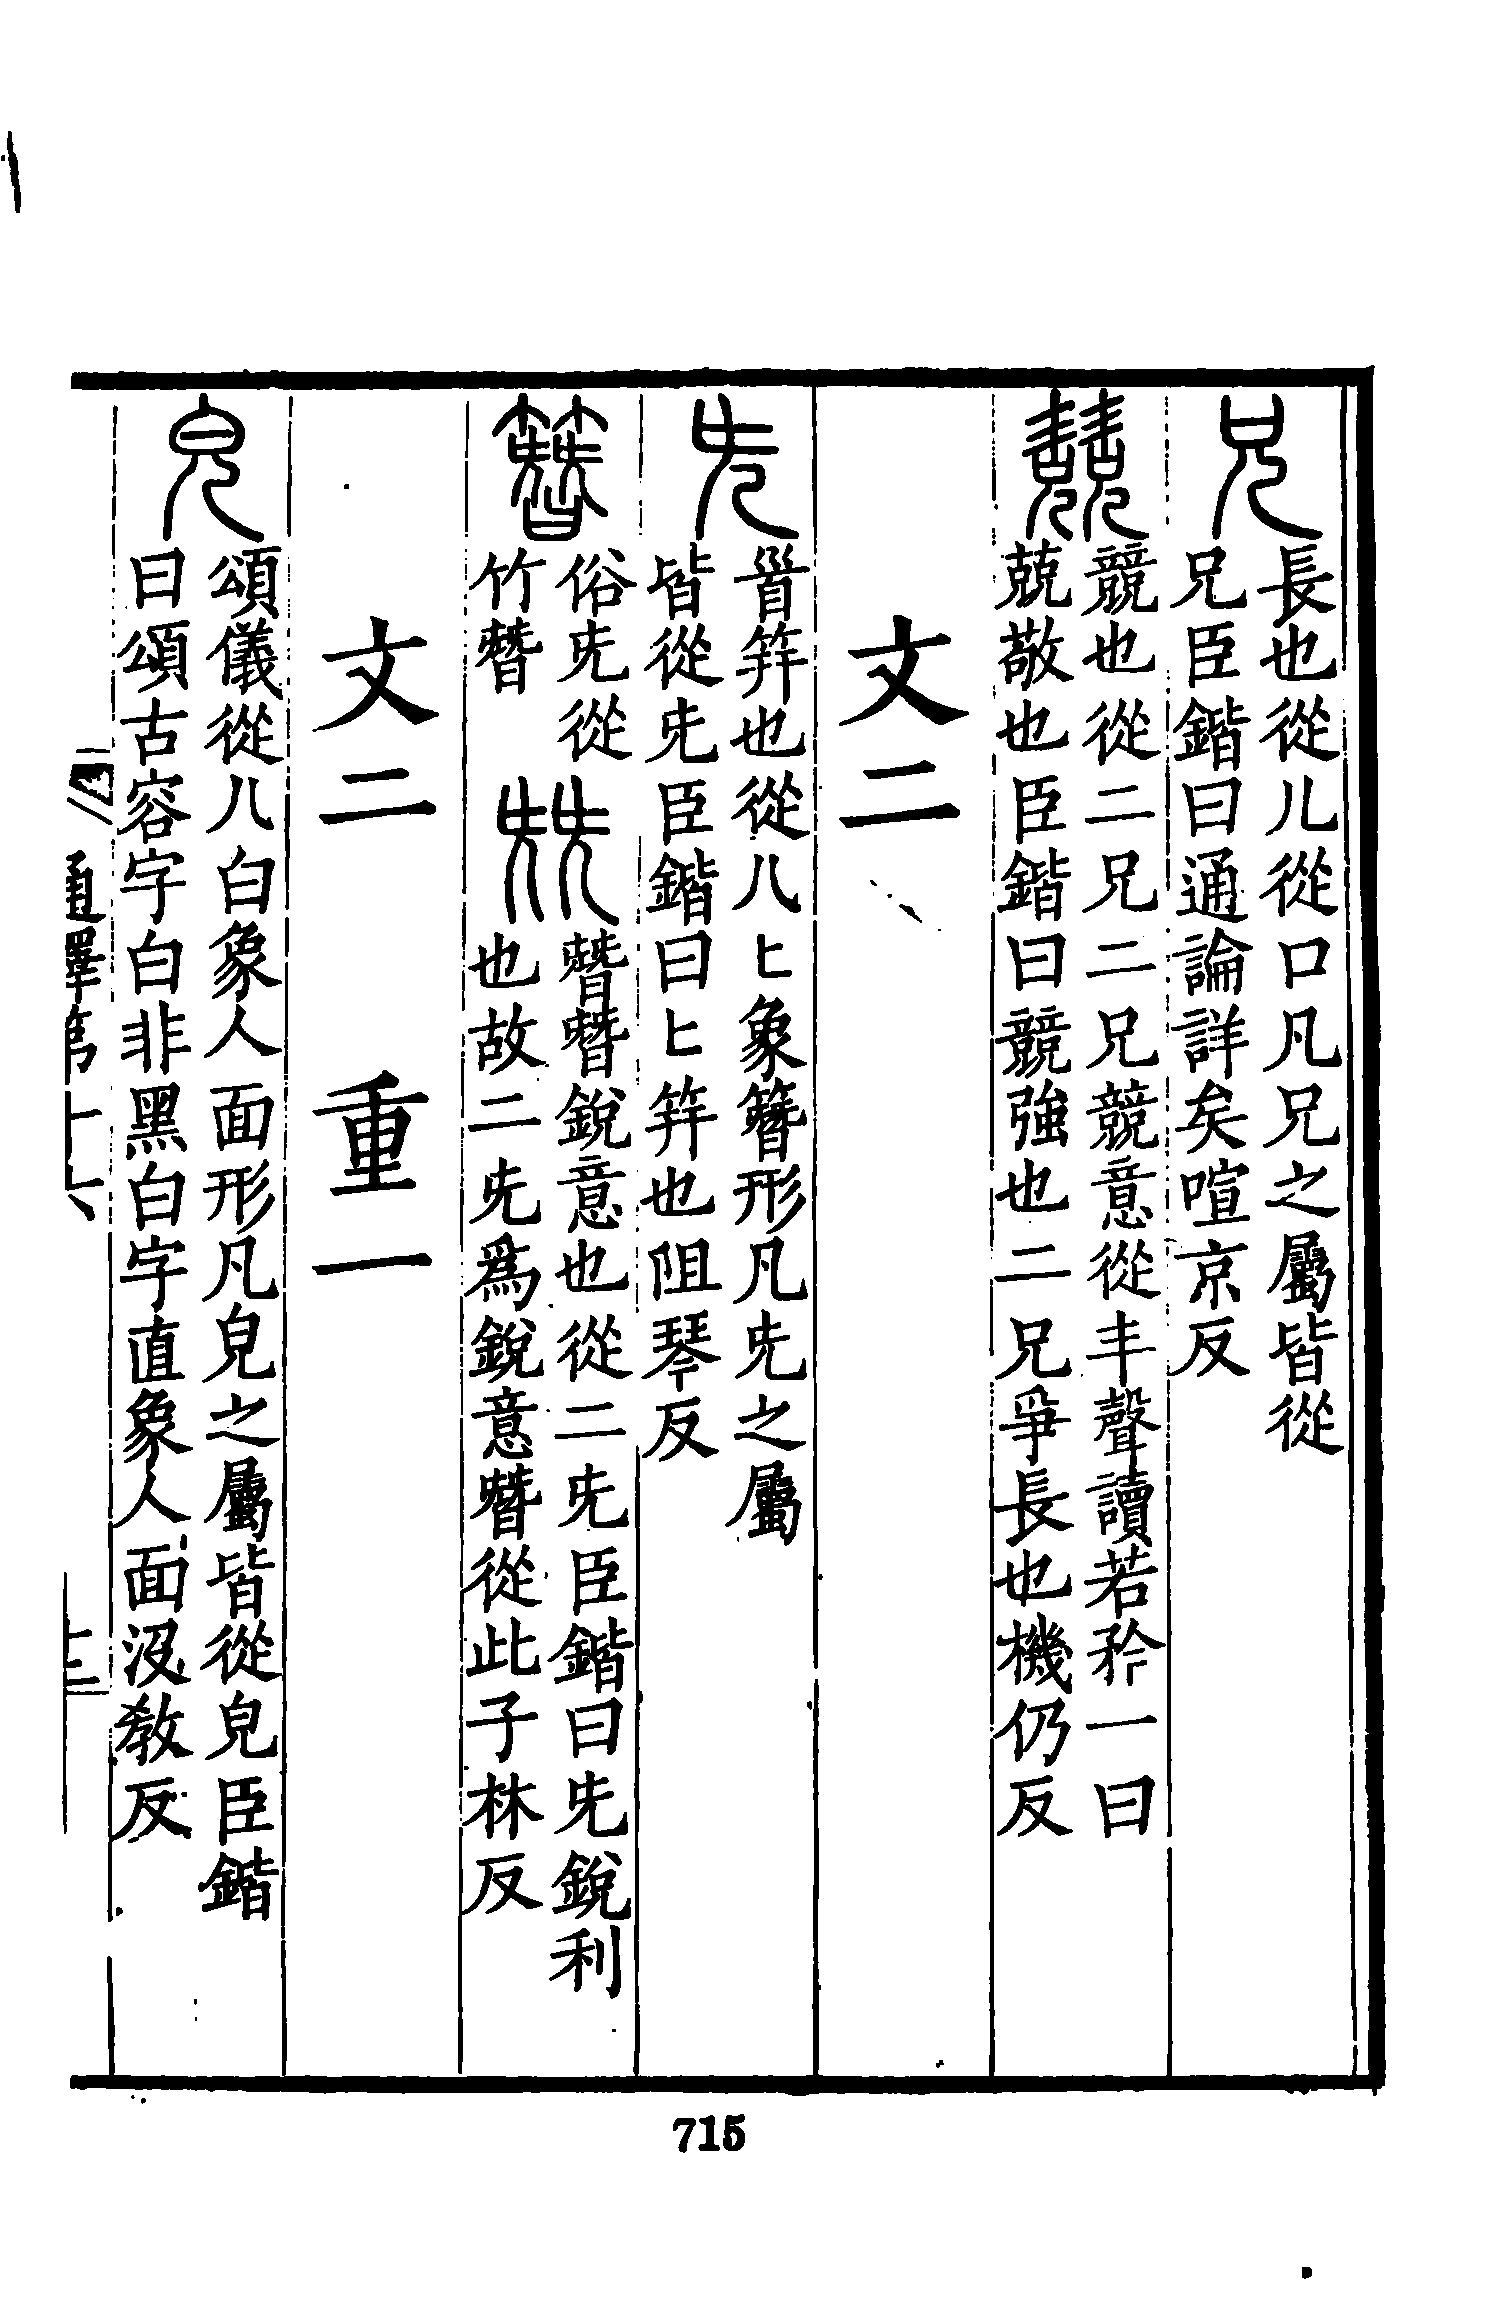 兄
長也從儿從口凡兄之屬皆從
兄臣鍇曰通論詳矣喧京反
競也從二兄二兄競意從丯聲讀若矜一曰
兢敬也臣鍇曰競強也二兄爭長也機仍反
文二
兂
首笄也從儿匕象簪形凡兂之屬
皆從兂臣鍇曰匕笄也阻琴反
簪
俗兂從
竹朁
兟
朁朁銳意也從二兂臣鍇曰兂銳利
也故二兂爲銳意朁從此子林反
文二 重一
皃
頌儀從儿白象人面形凡皃之屬皆從皃臣鍇
曰頌古容字白非黑白字直象人面沒教反
通釋第十六
715